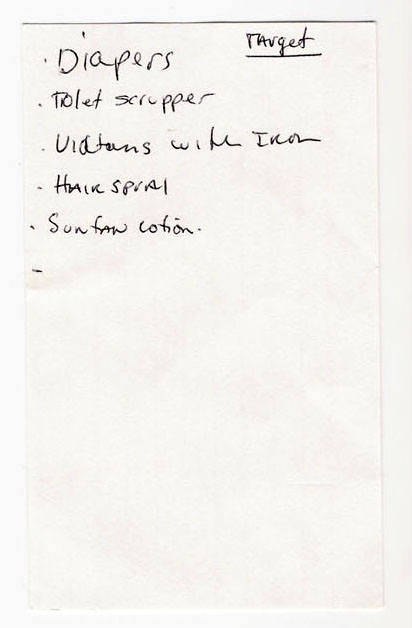 Target
· Diapers
· Tolet scrupper
· Vidtams with Iron
· Hair spral
· Suntan lotion.
-